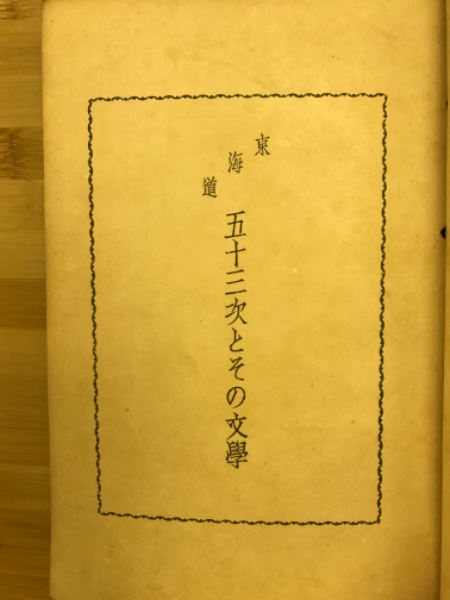 東海道
五十三次とその文學